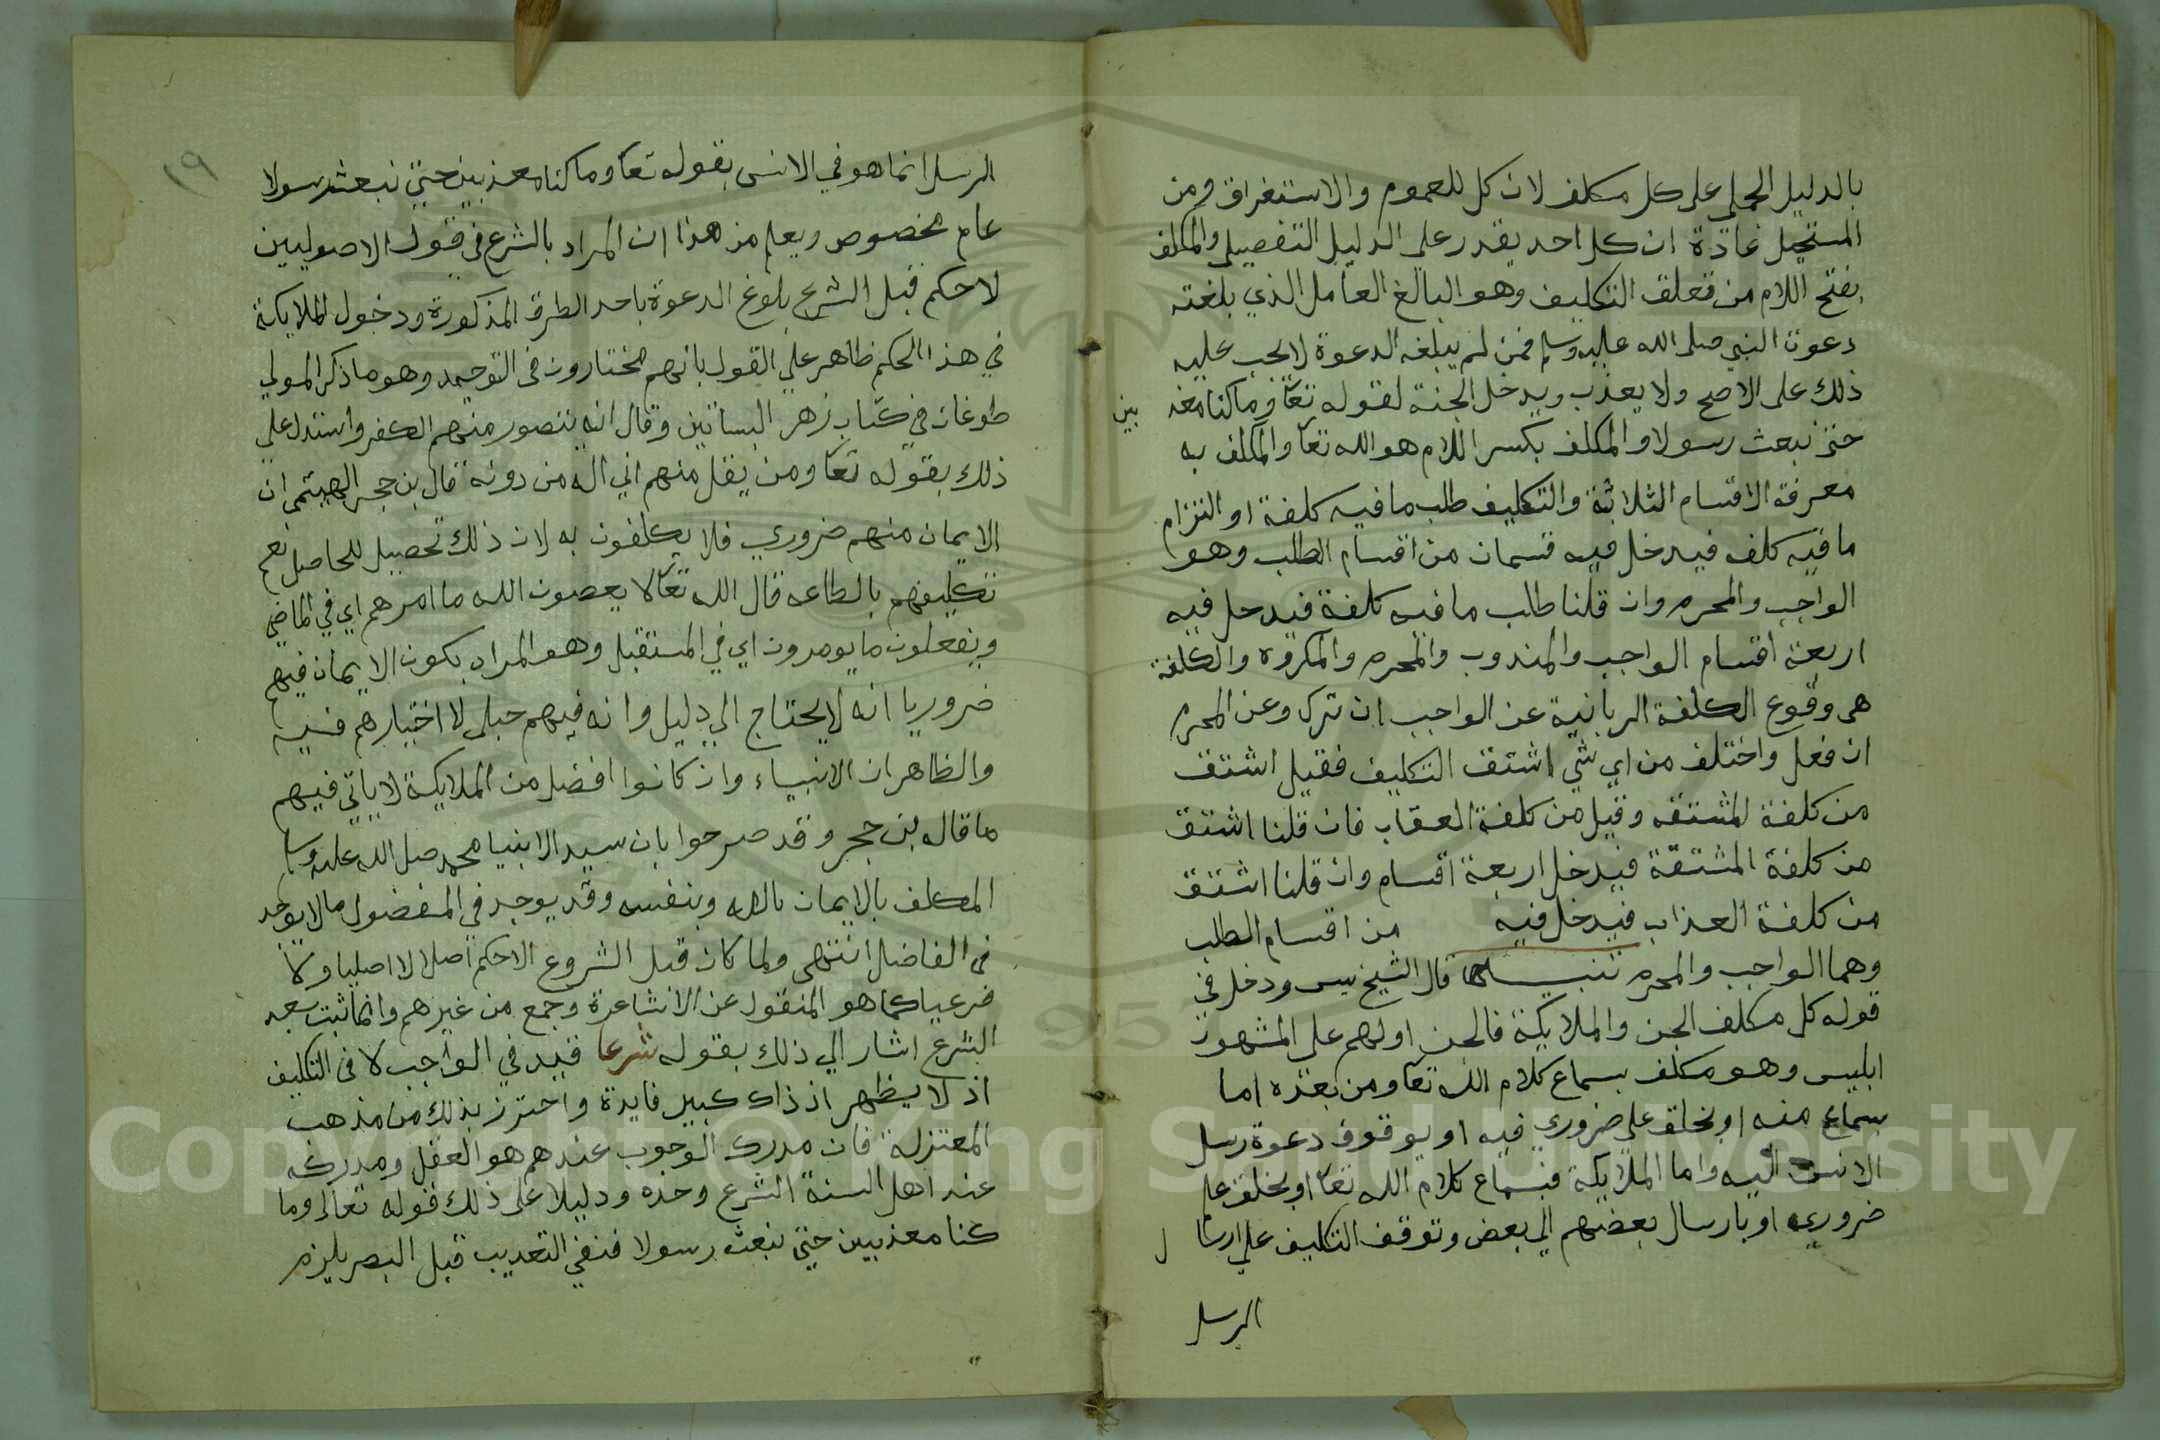 بالدليل الجملي على كل مكلف لان كل للعموم والاستغراق ومن
المستحيل عادة ان كل احد يقدر على الدليل التفصيلي والمكلف
بفتح اللام من تعلق التكليف وهو البالغ العاقل الذي بلغته
دعوت النبي صلى الله عليه وسلم فمن لم يبلغه الدعوة لا يجب عليه
ذلك على الاصح ولا يعذب ويدخل الجنة لقوله تعا وما كنا معذ
بين
حتى نبعث رسولا والمكلف بكسر اللام هو الله تعا والمكلف به
معرفة الاقسام الثلاثة والتكليف طلب ما فيه كلفة او التزام
ما فيه كلف فيدخل فيه قسمان من اقسام الطلب وهو
الواجب والمحرم وان قلنا طلب ما فيه كلفة فيدخل فيه
اربعة اقسام الواجب والمندوب والمحرم والمكروه والكلفة
هي وقوع الكلفة الربانية عن الواجب ان ترك وعن المحرم
ان فعل واختلف من اي شي اشتق التكليف فقيل اشتق
من كلفة المشتقه وقيل من كلفة العقاب فان قلنا اشتق
من كلفة المشتقة فيدخل اربعة اقسام وان قلنا اشتق
من كلفة العذاب فيدخل فيه من اقسام الطلب
وهما الواجب والمحرم تنبيه قال الشيخ يس ودخل في
قوله كل مكلف الجن والملايكة فالجن اولهم على المشهور
ابليس وهو مكلف بسماع كلام الله تعا ومن بعده اما
بسماع منه او بخلق علي ضروري فيه او بوقوف دعوة رسل
الانس اليه واما الملايكة فبسماع كلام الله تعا او بخلق علم
ضروري او بارسال بعضهم الي بعض وتوقف التكليف علي ارسا
ل
الرسل
١٩
الرسل انما هو في الانس بقوله تعا وما كنا معذبين حتي نبعث رسولا
عام مخصوص ويعلم من هذا ان المراد بالشرع في قول الاصوليين
لا حكم قبل الشرع بلوغ الدعوة باحد الطرق المذكورة ودخول الملايكة
في هذا الحكم ظاهر علي القول بانهم مختارون في التوحيد وهو ما ذكر المولي
طوغان في كتاب زهر البساتين وقال انه تتصور منهم الكفر واستدل علي
ذلك بقوله تعا ومن يقل منهم اني اله من دونه قال بن حجر الهيتمي ان
الايمان منهم ضروري فلا يكلفون به لان ذلك تحصيل للحاصل نعم
تكليفهم بالطاعه قال الله تعا لا يعصون الله ما امرهم اي في الماضي
ويفعلون ما يومرون اي في المستقبل وهو المراد بكون الايمان فيهم
ضروريا انه لا يحتاج الي دليل وانه فيهم جبلي لا اختيارهم فيه
والظاهر ان الانبياء وان كانوا افضل من الملايكة لا ياتي فيهم
ما قال بن حجر وقد صرحوا بان سيد الانبيا محمد صلى الله عليه وسلم
المكلف بالايمان بالله وبنفسه وقد يوجد في المفضول ما لا يوجد
في الفاضل انتهى ولما كان قبل الشروع لا حكم اصلا لا اصليا ولا
فرعيا كما هو المنقول عن الاشاعرة وجمع من غيرهم وانما ثبت بعد
الشرع اشار الي ذلك بقوله شرعا قيد في الواجب لا في التكليف
اذ لا يظهر اذ ذاك كبير فايدة واحترز بذلك من مذهب
المعتزلة فان مدرك الوجوب عندهم هو العقل ومدركه
عند اهل السنة الشرع وحده ودليلا على ذلك قوله تعالى وما
كنا معذبين حتي نبعث رسولا فنفي التعذيب قبل البصر يلزم
Copyright © King Saud University
1957